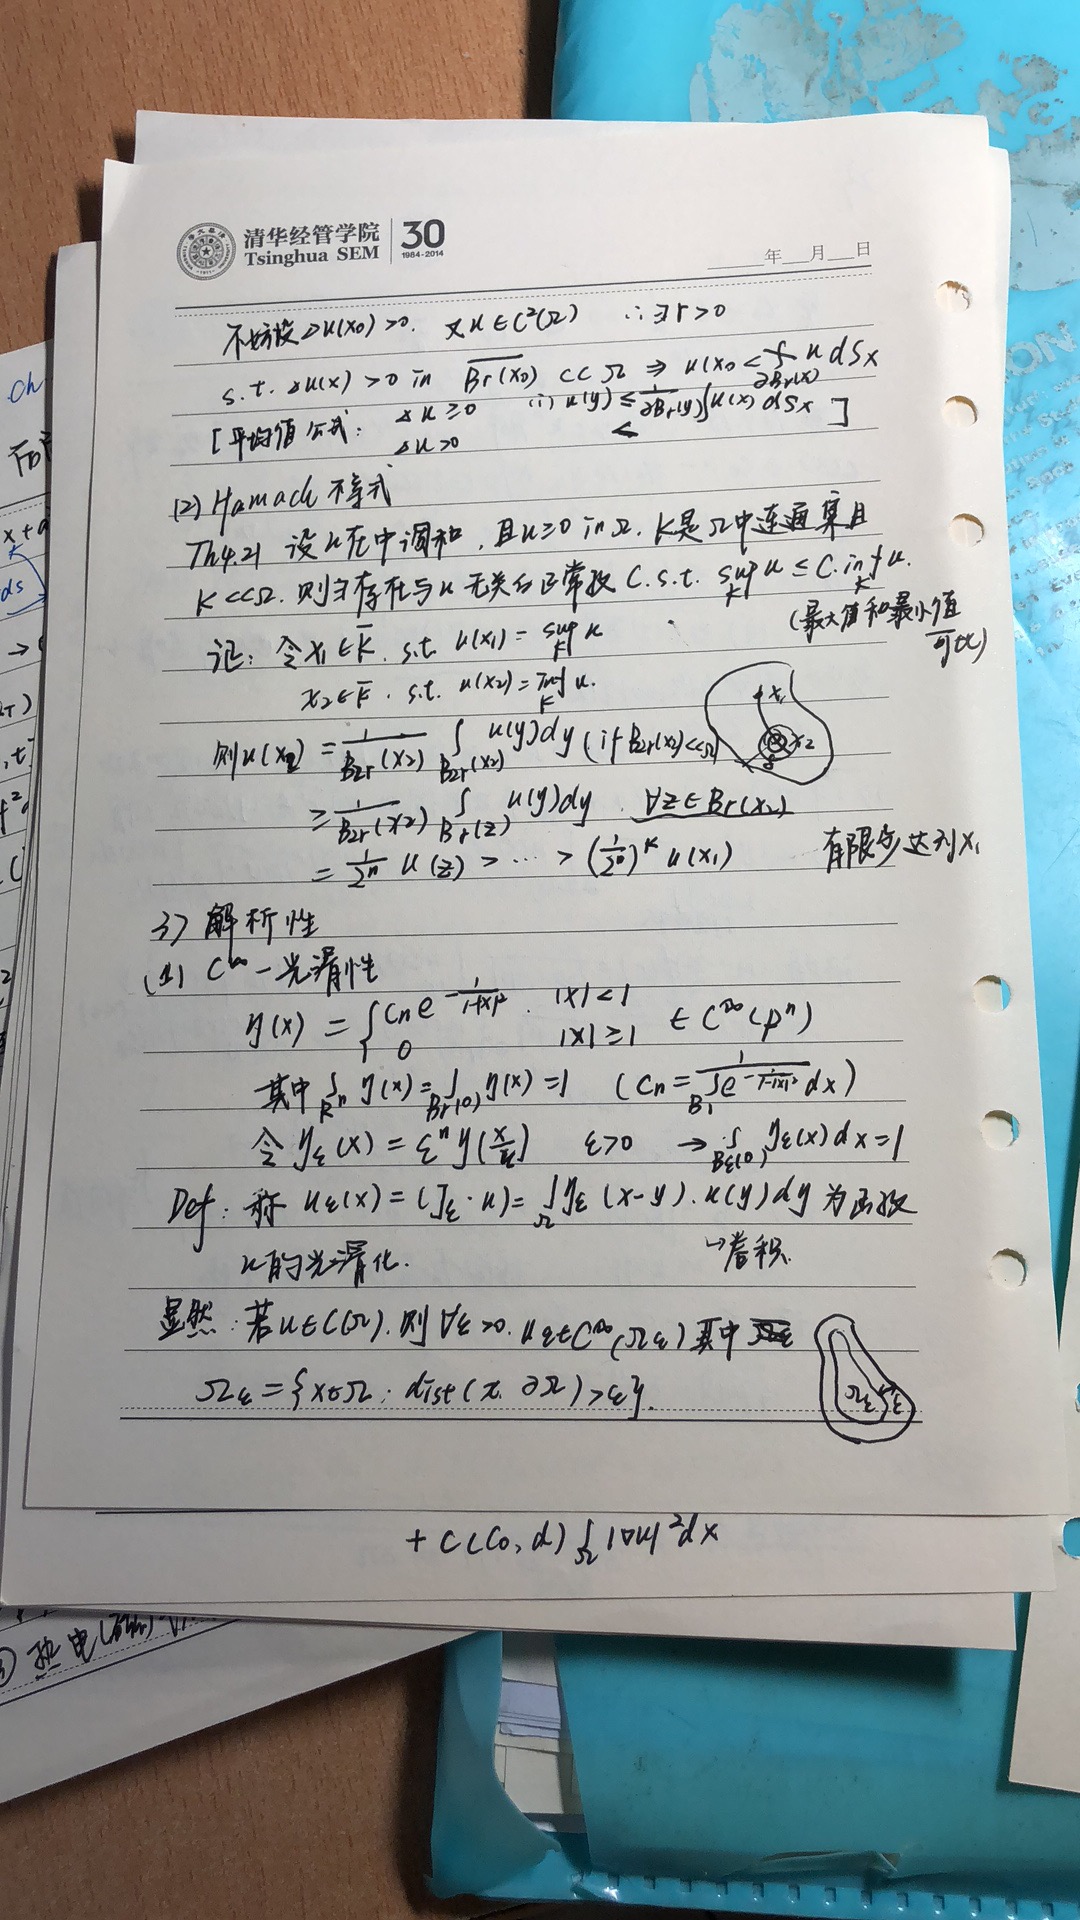 清华经管学院
Tsinghua SEM
30
1984-2014
年 月 日
不妨设 Δu(x₀) >0. 又 u∈C²(Ω) ∴∃r>0
s.t. Δu(x) >0 in \overline{Br(x₀)} ⊂⊂ Ω ⇒ u(x₀ < ⨍_{∂Br(x)} u dSx
[平均值公式: Δu≥0 (i) u(y) ≤ 1/∂Br(y) ∫u(x) dSx ]
Δu>0 <
(2) Hamack 不等式
Th4.21 设 u 在中调和, 且 u≥0 in Ω. K是Ω中连通集且
K⊂⊂Ω. 则∃存在与u无关的正常数 C. s.t. sup_K u ≤ C. inf_K u.
(最大值和最小值
可比)
证: 令 x₁∈\overline{K}. s.t. u(x₁) = sup_K u
x₂∈\overline{K}. s.t. u(x₂) = inf_K u.
x₁
x₂
则 u(x₂) = 1/B₂r(x₂) ∫_{B₂r(x₂)} u(y)dy (if B₂r(x₂)⊂⊂Ω)
≥ 1/B₂r(x₂) ∫_{Br(z)} u(y)dy . ∀z∈Br(x₂)
= 1/2ⁿ u(z) > ⋯ > (1/2ⁿ)^k u(x₁) 有限步达到x₁
3) 解析性
(1) C^∞ —光滑性
η(x) = { Cn e^{-1/(1-|x|²)} . |x|<1
0 |x|≥1 ∈ C^∞(Rⁿ)
其中 ∫_{Rⁿ} η(x) = ∫_{B₁(0)} η(x) = 1 (Cn = 1/∫_{B₁} e^{-1/(1-|x|²)} dx)
令 η_ε(x) = εⁿ η(x/ε) ε>0 → ∫_{Bε(0)} η_ε(x) dx = 1
Def: 称 u_ε(x) = (J_ε · u) = ∫_Ω η_ε (x-y). u(y)dy 为函数
u的光滑化. →卷积.
显然: 若 u∈C(Ω). 则 ∀ε>0. u_ε∈C^∞(Ω_ε) 其中
Ω_ε = {x∈Ω: dist(x. ∂Ω) >ε}.
Ω_ε ε
+ C(C₀, d) ∫_Ω |∇u|² dx
热电